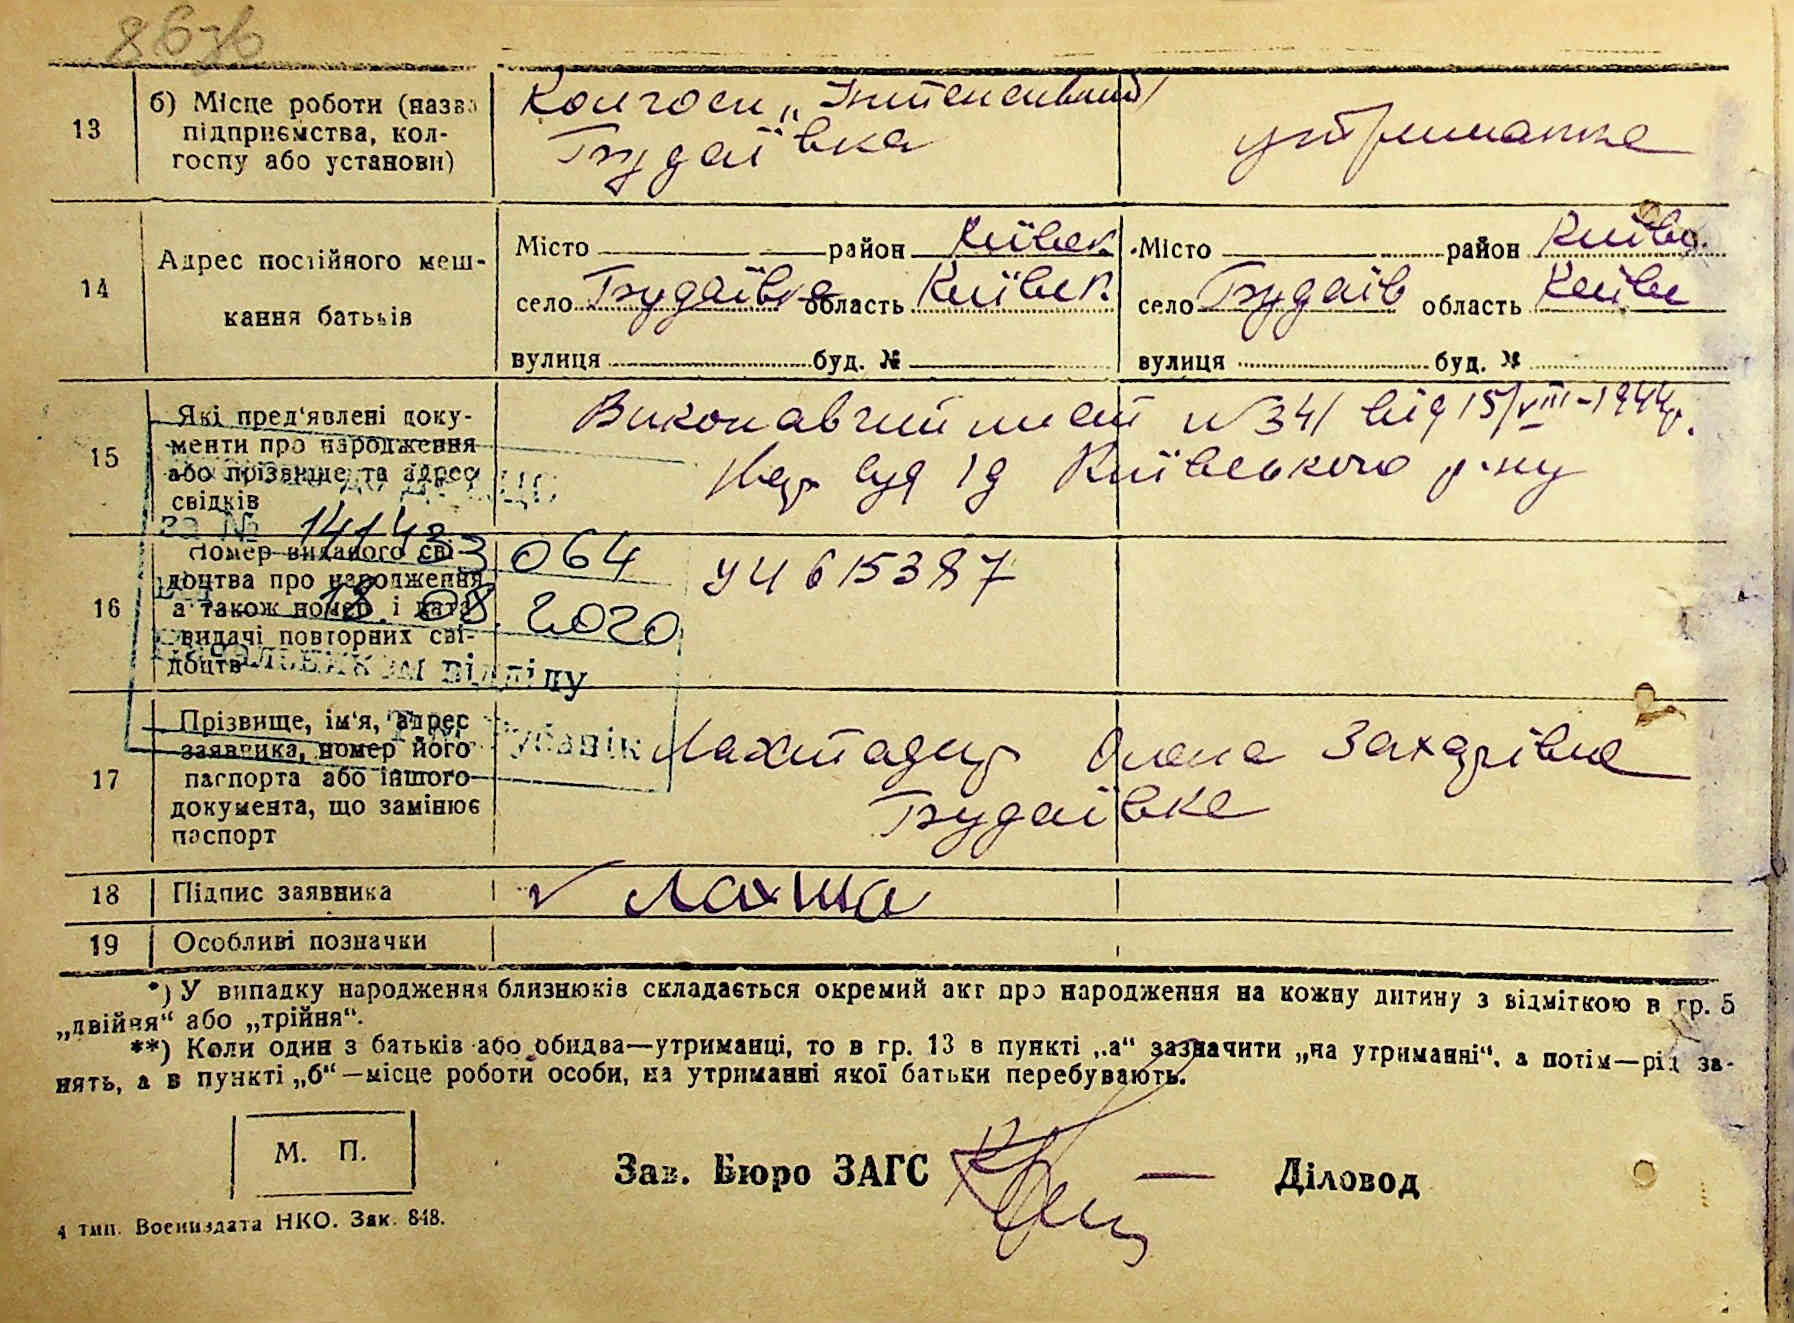 867б
13
б) Місце роботи (назва
підприємства, кол-
госпу або установи)
Колгосп „Інтенсивний"
Будаївка
утриманка
14
Адрес постійного меш-
кання батьків
Місто район Київськ. Місто район Київс.
село Будаївка область Київськ. село Будаїв область Київс
вулиця буд. № вулиця буд. №
15
Які пред'явлені доку-
менти про народження
або прізвище та адрес
свідків
Виконавчий лист №341 від 15/VIII-1944р.
Нар суд 1д Київського р-ну
за № 141433064
18.08.2020
Начальником відділу
16
Номер виданого сві-
доцтва про народження
а також номер і дата
видачі повторних сві-
доцтв
УЧ 615387
17
Прізвище, ім'я, адрес
заявника, номер його
паспорта або іншого
документа, що замінює
паспорт
Олена Захарівна
Будаївка
18
Підпис заявника
v Лахта
19
Особливі позначки
*) У випадку народження близнюків складається окремий акт про народження на кожну дитину з відміткою в гр. 5
„двійня“ або „трійня“.
**) Коли один з батьків або обидва—утриманці, то в гр. 13 в пункті „а“ зазначити „на утриманні“, а потім—рід за-
нять, а в пункті „б“—місце роботи особи, на утриманні якої батьки перебувають.
М. П.
Зав. Бюро ЗАГС
Діловод
4 тип. Воениздата НКО. Зак. 848.